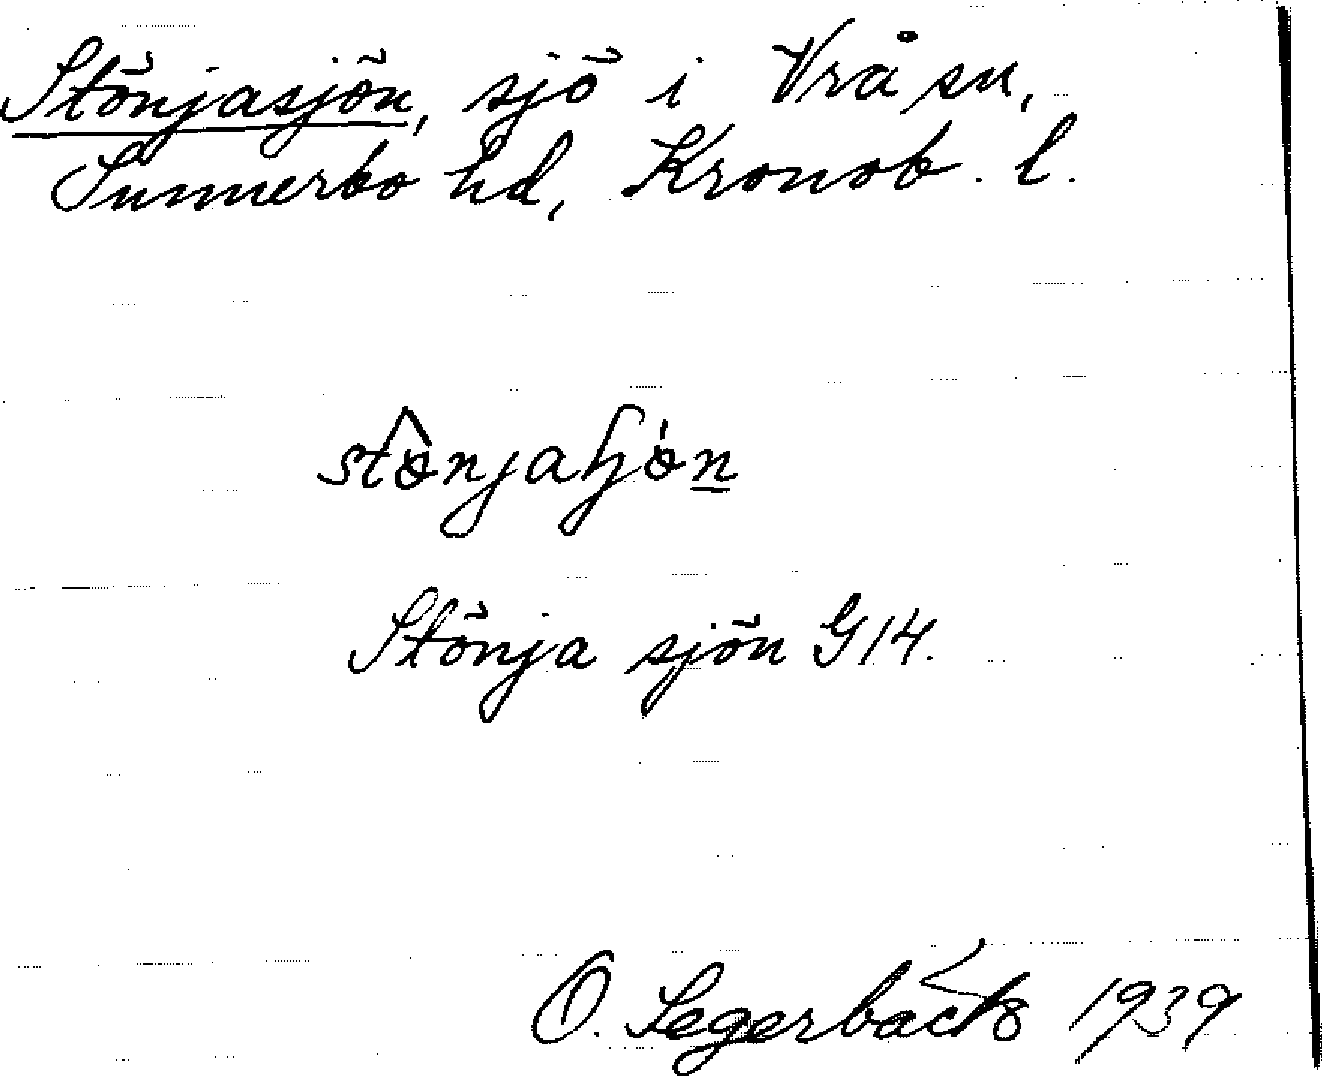 Stönjasjön, sjö i Vrå sn,
Sunnerbo hd, Kronob. l.
Stönja sjön G14.
O. Segerbäck 1939